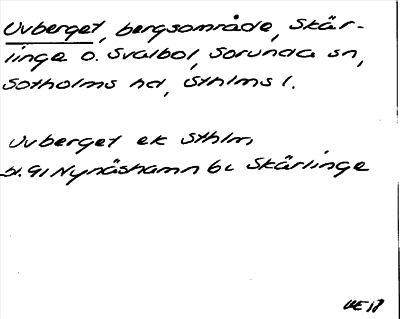 Uvberget, bergsområde, Skär-
linge o. Svalbol, Sorunda sn,
Sotholms hd, Sthlms l.
Uvberget ek Sthlm
bl. 91 Nynäshamn bl Skärlinge